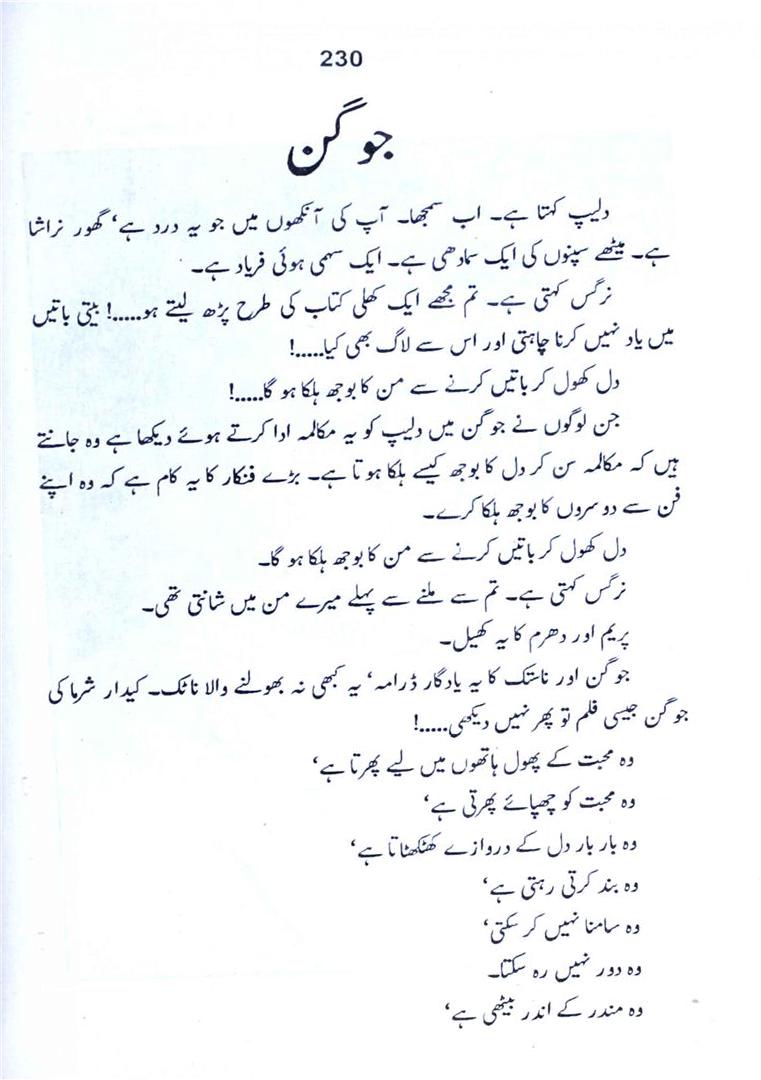 230
جوگن
دلیپ کہتا ہے۔ اب سمجھا۔ آپ کی آنکھوں میں جو یہ درد ہے‘ گھور نراشا
ہے۔ میٹھے سپنوں کی ایک سمادھی ہے۔ ایک سہمی ہوئی فریاد ہے۔
نرگس کہتی ہے۔ تم مجھے ایک کھلی کتاب کی طرح پڑھ لیتے ہو.....! بیتی باتیں
میں یاد نہیں کرنا چاہتی اور اس سے لاگ بھی کیا.....!
دل کھول کر باتیں کرنے سے من کا بوجھ ہلکا ہو گا.....!
جن لوگوں نے جوگن میں دلیپ کو یہ مکالمہ ادا کرتے ہوئے دیکھا ہے وہ جانتے
ہیں کہ مکالمہ سن کر دل کا بوجھ کیسے ہلکا ہوتا ہے۔ بڑے فنکار کا یہ کام ہے کہ وہ اپنے
فن سے دوسروں کا بوجھ ہلکا کرے۔
دل کھول کر باتیں کرنے سے من کا بوجھ ہلکا ہو گا۔
نرگس کہتی ہے۔ تم سے ملنے سے پہلے میرے من میں شانتی تھی۔
پریم اور دھرم کا یہ کھیل۔
جوگن اور ناستک کا یہ یادگار ڈرامہ‘ یہ کبھی نہ بھولنے والا ناٹک۔ کیدار شرما کی
جوگن جیسی فلم تو پھر نہیں دیکھی.....!
وہ محبت کے پھول ہاتھوں میں لیے پھرتا ہے‘
وہ محبت کو چھپائے پھرتی ہے‘
وہ بار بار دل کے دروازے کھٹکھٹاتا ہے‘
وہ بند کرتی رہتی ہے‘
وہ سامنا نہیں کر سکتی‘
وہ دور نہیں رہ سکتا۔
وہ مندر کے اندر بیٹھی ہے‘